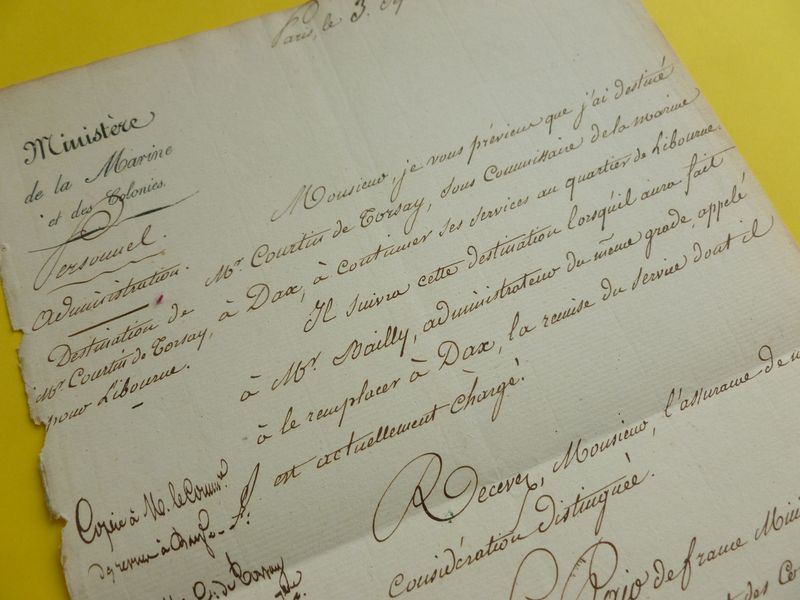 Paris, le 3.
Ministère
de la Marine
et des Colonies.
Personnel.
Administration.
Destination de
Mr. Courtin de Torsay,
pour Libourne.
Monsieur, je vous préviens que j'ai destiné
Mr. Courtin de Torsay, sous Commissaire de la marine
à Dax, à continuer ses services au quartier de Libourne.
Il suivra cette destination lorsqu'il aura fait
à Mr. Bailly, administrateur du même grade, appelé
à le remplacer à Dax, la remise du service dont il
est actuellement chargé.
Recevez, Monsieur, l'assurance de
considération distinguée.
Copie à M. le
à
de Torsay
de france